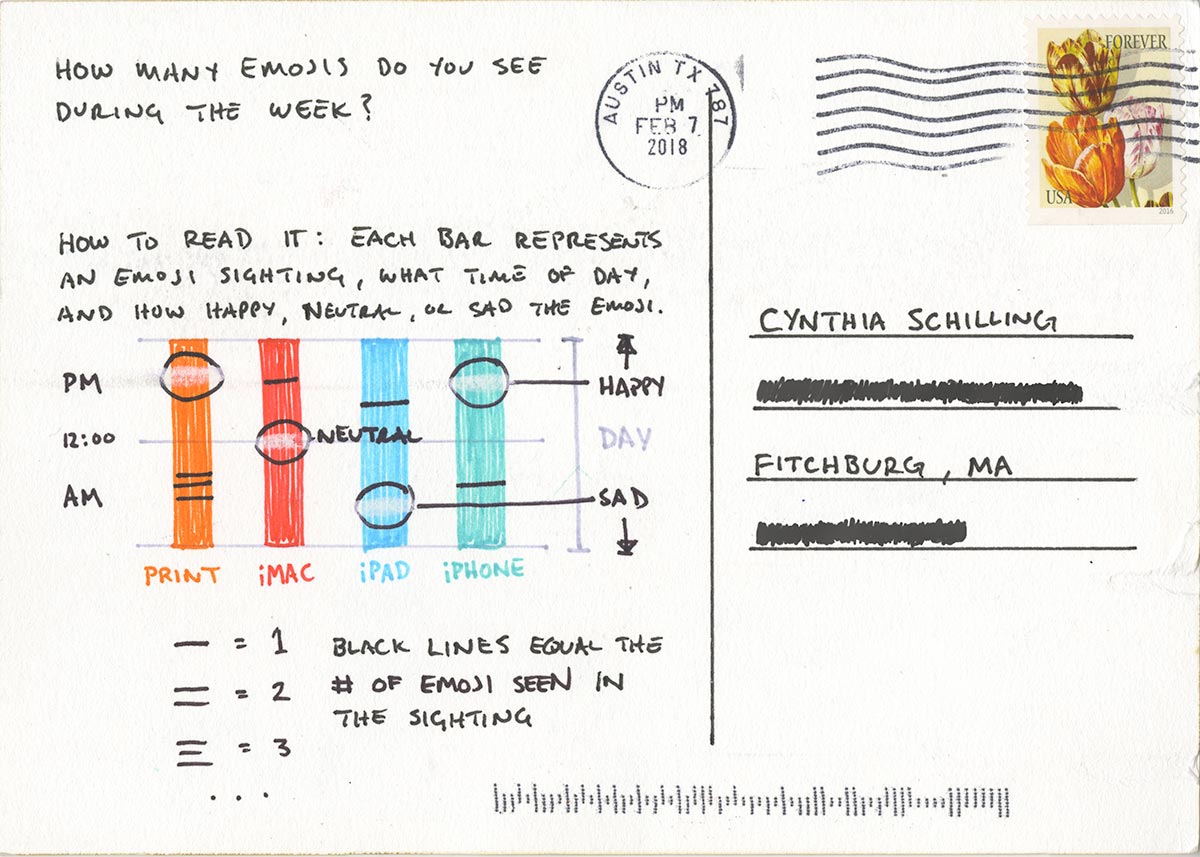 HOW MANY EMOJIS DO YOU SEE
DURING THE WEEK?
AUSTIN TX 787
PM
FEB 7
2018
FOREVER
USA
2016
HOW TO READ IT: EACH BAR REPRESENTS
AN EMOJI SIGHTING, WHAT TIME OF DAY,
AND HOW HAPPY, NEUTRAL, OR SAD THE EMOJI.
PM
HAPPY
12:00
NEUTRAL
DAY
AM
SAD
PRINT iMAC iPAD iPHONE
= 1
= 2
= 3
...
BLACK LINES EQUAL THE
# OF EMOJI SEEN IN
THE SIGHTING
CYNTHIA SCHILLING
FITCHBURG, MA